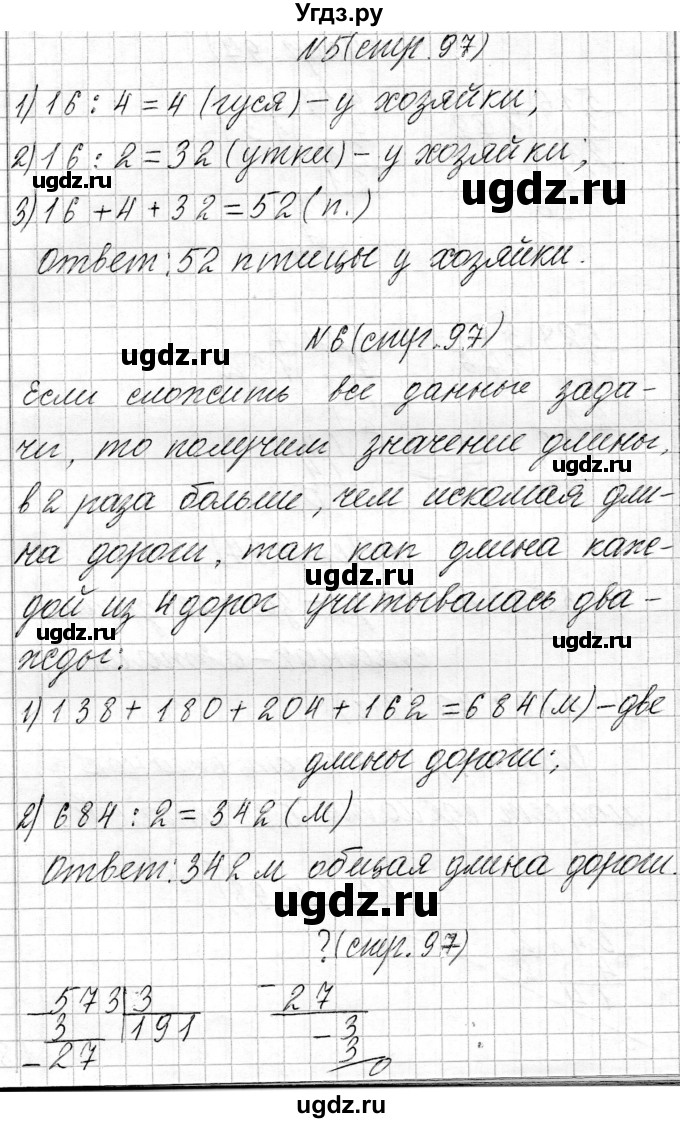 Угдз.ру
N5(стр.97)
1) 16 : 4 = 4 (гуся) – у хозяйки;
2) 16 : 2 = 32 (утки) – у хозяйки;
ugdz.ru
ugdz.ru
3) 16 + 4 + 32 = 52 (п.)
Ответ: 52 птицы у хозяйки.
N6(стр.97)
ugdz.ru
Если сложить все данные зада-
чи, то получим значение длины,
ugdz.ru
в 2 раза больше, чем искомая дли-
на дороги, так как длина каж-
ugdz.ru
дой из 4 дорог учитывалась два-
ugdz.ru
жды:
1) 138 + 180 + 204 + 162 = 684 (м) – две
длины дороги;
2) 684 : 2 = 342 (м)
Ответ: 342 м общая длина дороги.
ugdz.ru
?(стр.97)
573 3
3 191
-27
- 27
- 3
3
0
ugdz.ru